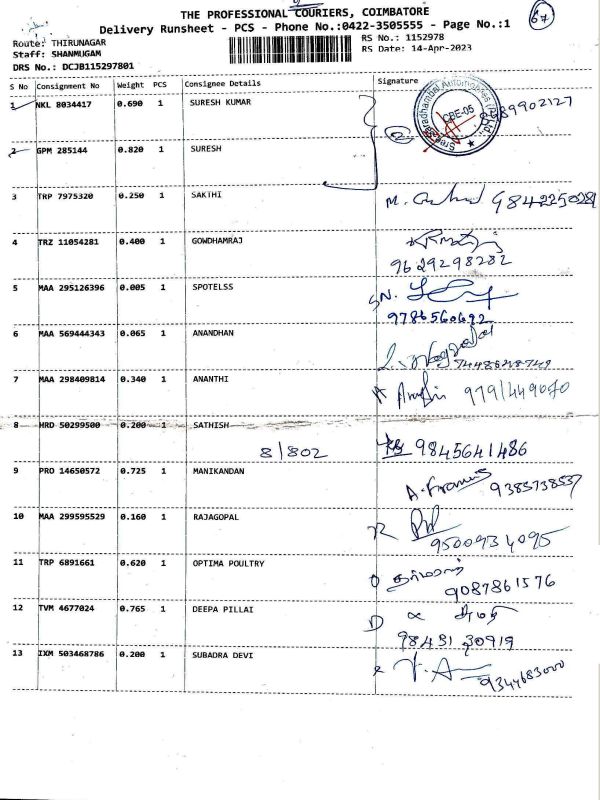 67
THE PROFESSIONAL COURIERS, COIMBATORE
Delivery Runsheet - PCS - Phone No.:0422-3505555 - Page No.:1
Route: THIRUNAGAR
RS No.: 1152978
Staff: SHANMUGAM
RS Date: 14-Apr-2023
DRS No.: DCJB115297801
S No Consignment No Weight PCS Consignee Details Signature
1 NKL 8034417 0.690 1 SURESH KUMAR
CBE-05
2 GPM 285144 0.820 1 SURESH
3 TRP 7975320 0.250 1 SAKTHI
M.
4 TRZ 11054281 0.400 1 GOWDHAMRAJ
9629298282
5 MAA 295126396 0.005 1 SPOTELSS
SN.
9786560692
6 MAA 569444343 0.065 1 ANANDHAN
7 MAA 298409814 0.340 1 ANANTHI
9791449070
8 HRD 50299500 0.200 1 SATHISH
8/802 9845641486
9 PRO 14650572 0.725 1 MANIKANDAN
A. Francis 9385738537
10 MAA 299595529 0.160 1 RAJAGOPAL
R
9500934095
11 TRP 6891661 0.620 1 OPTIMA POULTRY
O
9087861576
12 TVM 4677024 0.765 1 DEEPA PILLAI
D
98431 30919
13 IXM 503468786 0.200 1 SUBADRA DEVI
9344683000